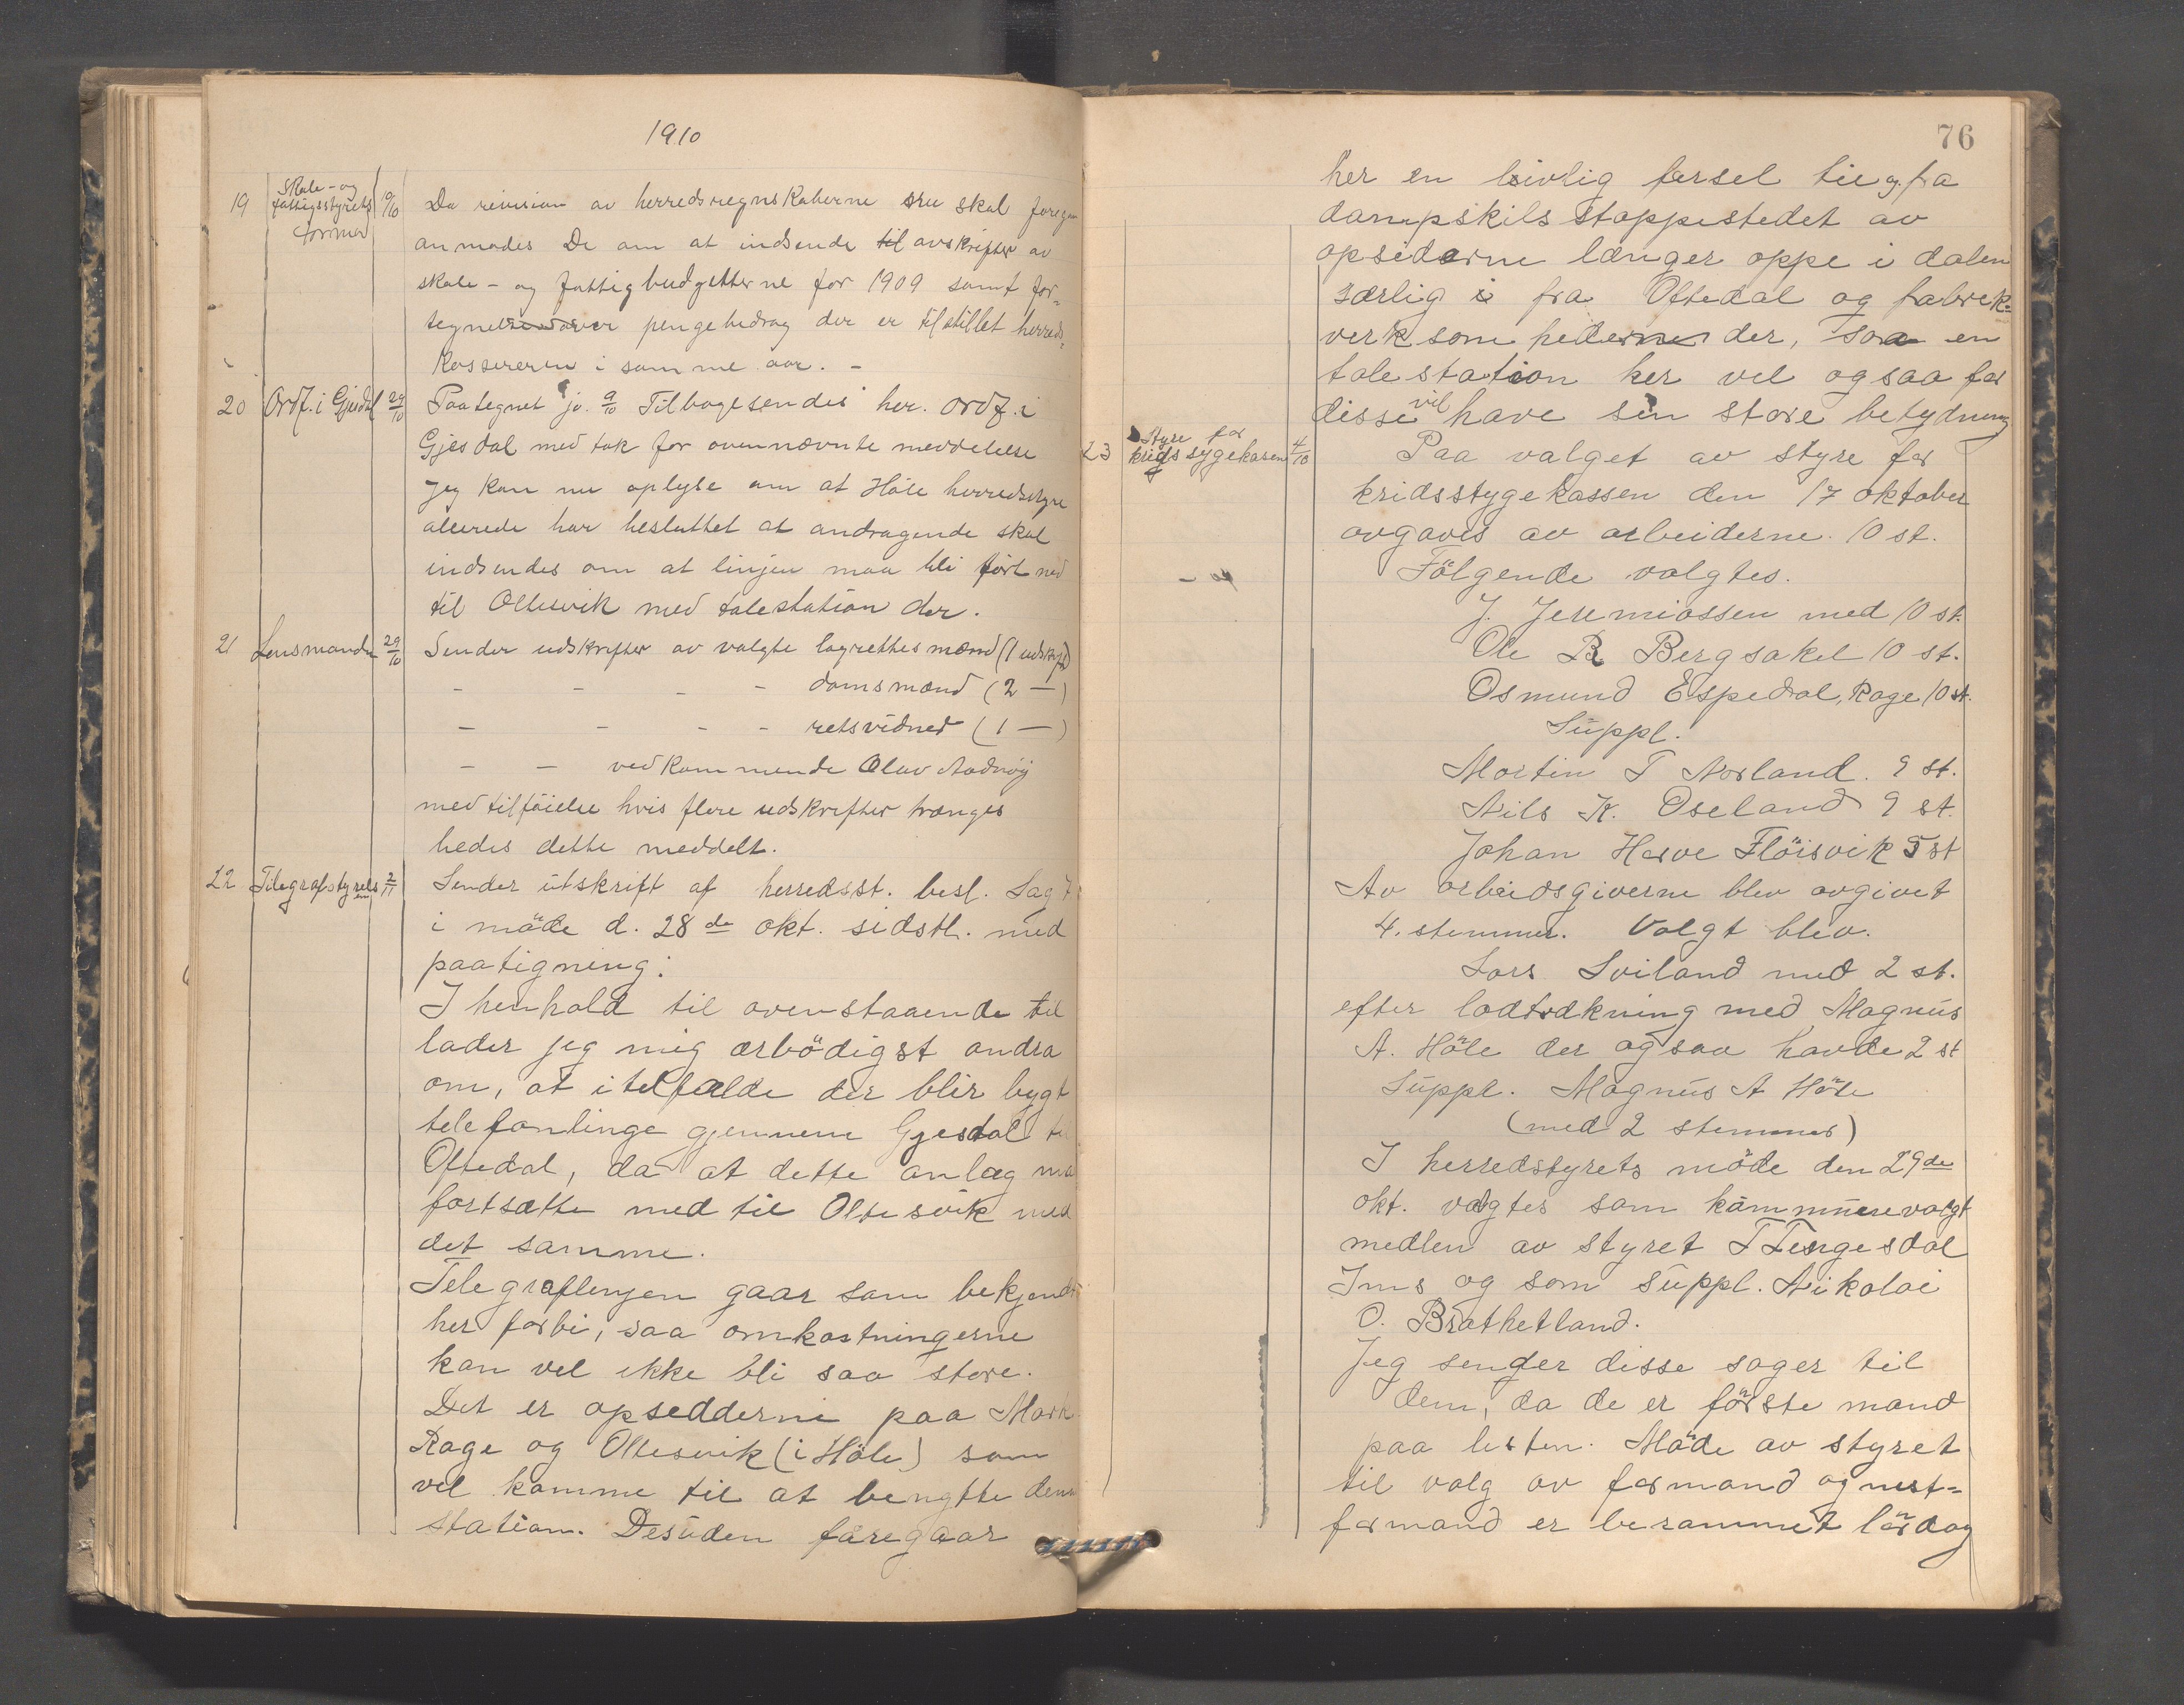 1910
19 Skole- og fattigsstyrets formæd 9/10 Da revision av herredsregnskaberne snu skal foregaa
anmodes De om at indsende til avskrifter av
skole- og fattigbudgetterne for 1909 samt for-
tegnelse over pengebedrag der er tilstillet herreds-
kassereren i samme aar. –
20 Ordf. i Gjesdal 29/10 Paategnet jo. 9/10 Tilbagesendes her. ordf. i
Gjesdal med tak for ovennævnte meddelelse
Jeg kan nu oplyse om at Höle herredsstyre
allerede har besluttet at andragende skal
indsendes om at linjen maa bli fört ned
til Oltesvik med talestation der.
21 Lensmanden 29/10 Sender udskrifter av valgte lagrettesmænd (1 udskrift)
– – – – domsmænd (2 –)
– – – – retsvidner (1 –)
– – vedkommende Olav Aadnöy
med tilföielse hvis flere udskrifter trænges
bedes dette meddelt.
22 Telegrafstyrelsen 2/11 Sender utskrift af herredsst. besl. Sag 7
i möde d. 28de okt. sidstl. med
paatigning:
I henhold til ovenstaaende til
lader jeg mig ærbödigst andra
om, at i tilfælde der blir bygt
telefonlinge gjennem Gjesdal til
Oftedal, da at dette anlæg maa
fortsætte med til Oltesvik med
det samme.
Telegraflinjen gaar som bekjendt
her forbi, saa omkostningerne
kan vel ikke bli saa store.
Det er opsedderne paa Mork
Rage og Oltesvik (i Höle) som
vel komme til at bengtte denne
station. Desuden foregaar
76
her en livlig færsel til og fra
dampskils stoppestedet av
opsiderne længer oppe i dalen
særlig fra Oftedal og fabrik-
verksomhederne der, saa en
talestation her vel ogsaa for
disse vil have sin store betydning
23 Styre for kridssygekasen 4/10 Paa valget av styre for
kridsstygekassen den 17 oktober
avgaves av arbeiderne 10 st.
Fölgende valgtes.
J. Jeremiassen med 10 st.
Ole R Bergsakel 10 st.
Osmund Espedal, Rage 10 st.
Suppl.
Martin T Norland. 9 st.
Nils K. Oseland 9 st.
Johan Herve Flöisvik 5 st
Av arbeidsgiverne blev avgivet
4. stemmer. Valgt blev.
Lars Sviland med 2 st.
efter lodtrækning med Magnus
A. Höle der ogsaa havde 2 st
Suppl. Magnus A Höle
(med 2 stemmer)
I herredstyrets möde den 29de
okt. valgtes som kommunevalgt
medlem av styret T Tengesdal
Ims og som suppl. Nikolai
O. Bråthetland.
Jeg sender disse sager til
dem, da de er förste mand
paa listen. Möde av styret
til valg av formand og næst-
formand er berammet lördag